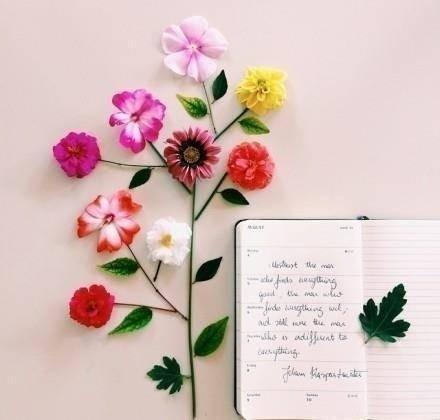 AUGUST
Mistrust the man
who finds everything
good, the man who
finds everything evil,
and still more the man
who is indifferent to
everything.
Johann Kaspar Lavater